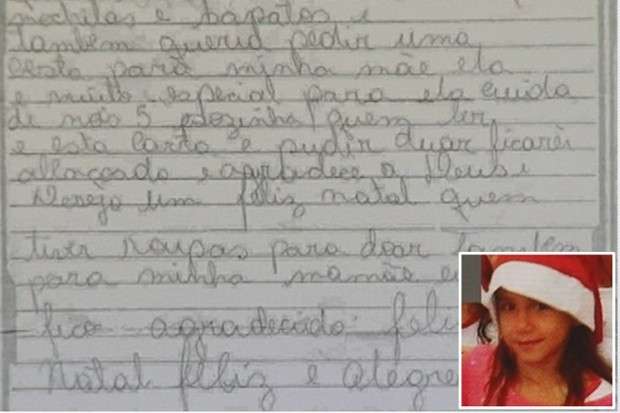 mochilas e sapatos e
também querid pedir uma
cesta para minha mãe ela
e muito especial para ela cuida
de nois 5 sozinha quem ler
e esta carta e pudir duar ficarei
e agradece a Deus e
Desejo um feliz natal quem
tiver roupas para doar também
para minha mamãe e
fico agradecido feli
Natal feliz e alegre